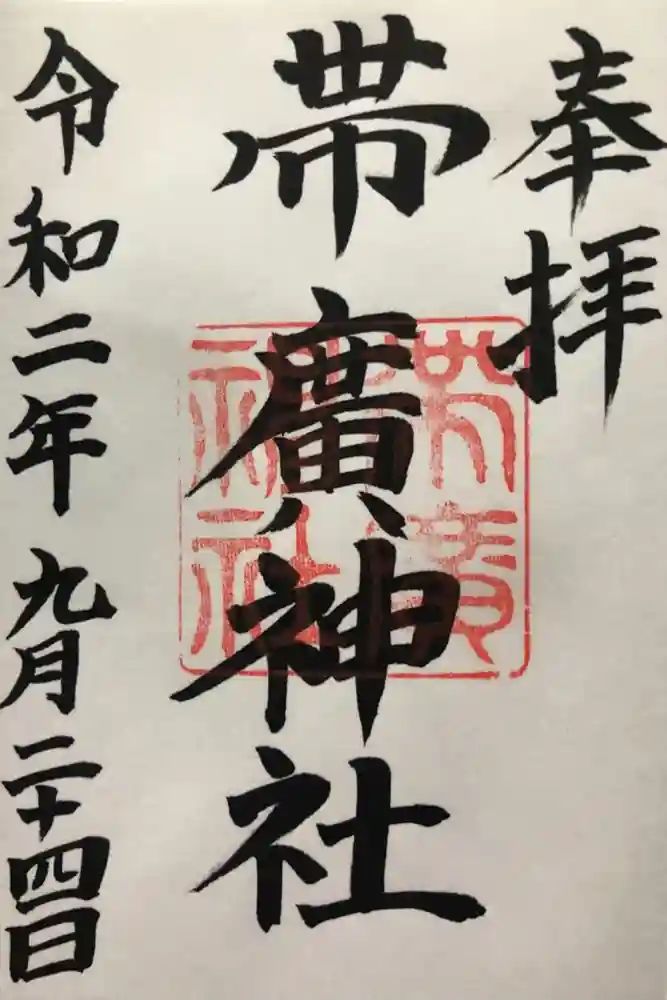 奉拝
帯廣神社
令和二年九月二十四日
帯廣
神社